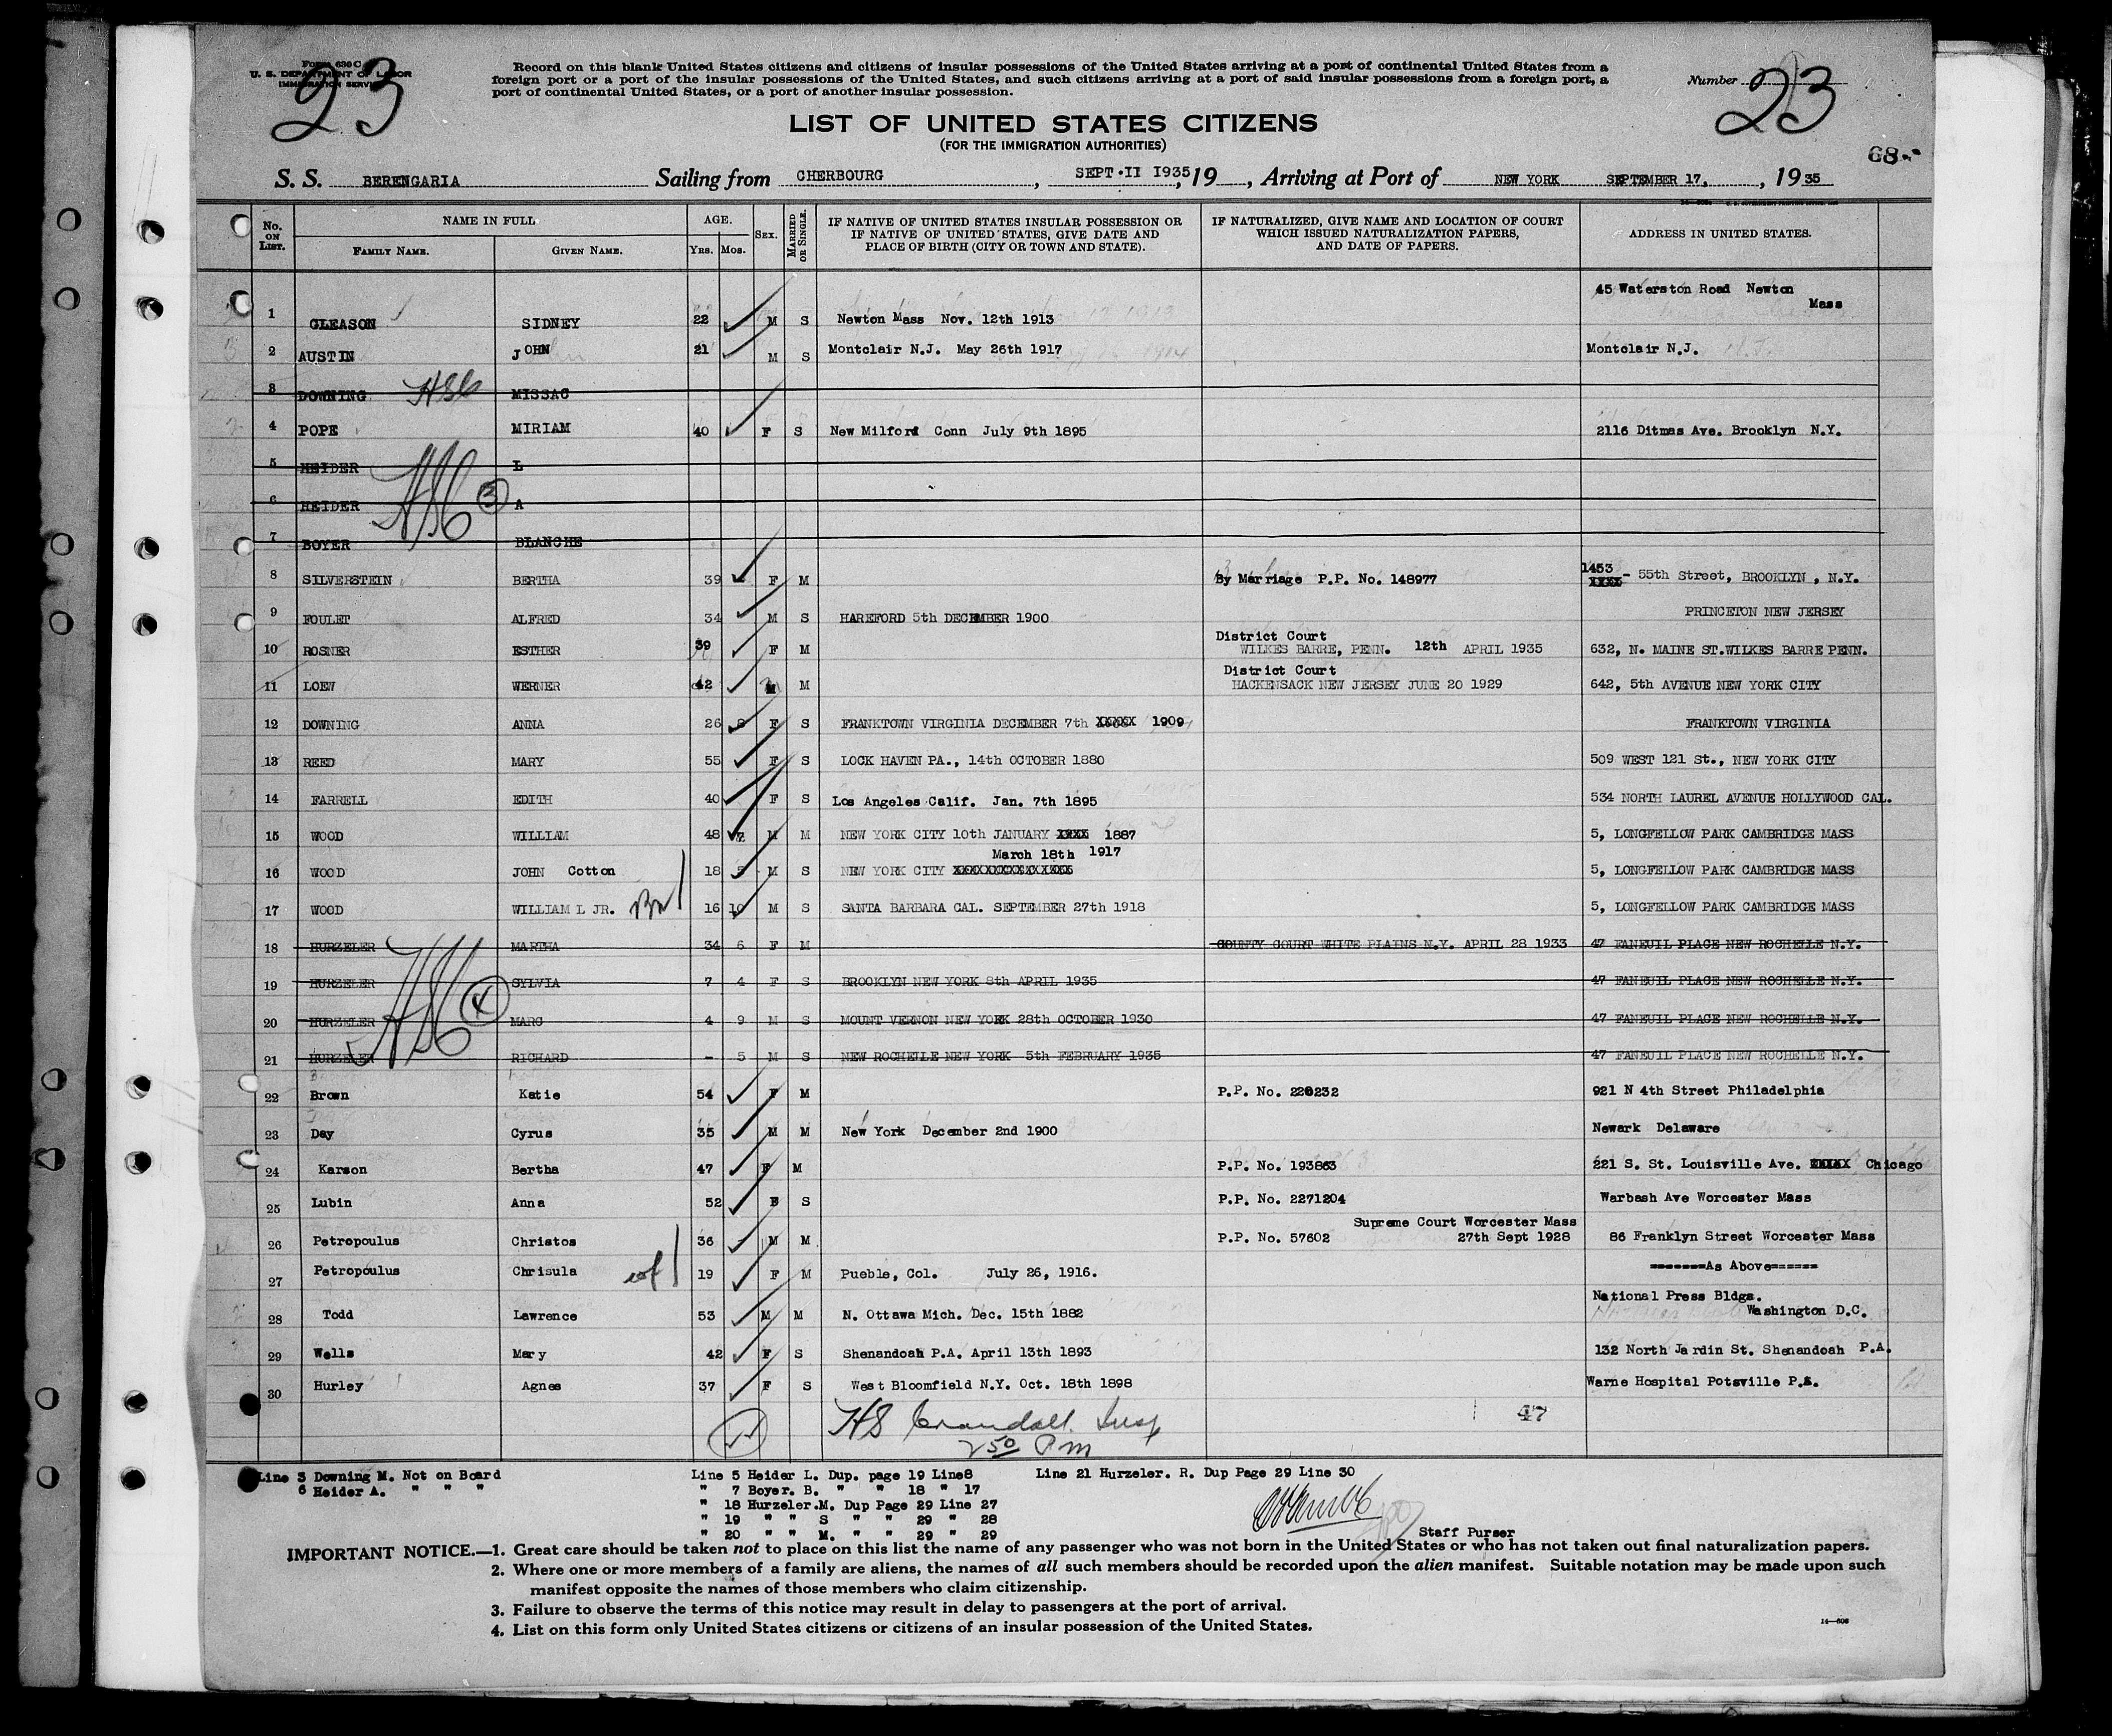 Form 630 C
U. S. DEPARTMENT OF LABOR
IMMIGRATION SERVICE
23
Record on this blank United States citizens and citizens of insular possessions of the United States arriving at a port of continental United States from a
foreign port or a port of the insular possessions of the United States, and such citizens arriving at a port of said insular possessions from a foreign port, a
port of continental United States, or a port of another insular possession.
Number
23
LIST OF UNITED STATES CITIZENS
(FOR THE IMMIGRATION AUTHORITIES)
68
S. S. BERENGARIA Sailing from CHERBOURG, SEPT. II I935, 19 , Arriving at Port of NEW YORK SEPTEMBER 17, , 1935
No. ON LIST. NAME IN FULL FAMILY NAME. GIVEN NAME. AGE. YRS. MOS. SEX. MARRIED OR SINGLE. IF NATIVE OF UNITED STATES INSULAR POSSESSION OR IF NATIVE OF UNITED STATES, GIVE DATE AND PLACE OF BIRTH (CITY OR TOWN AND STATE). IF NATURALIZED, GIVE NAME AND LOCATION OF COURT WHICH ISSUED NATURALIZATION PAPERS, AND DATE OF PAPERS. ADDRESS IN UNITED STATES.
1 GLEASON SIDNEY 22 M S Newton Mass Nov. 12th 1913 45 Waterston Road Newton Mass
2 AUSTIN JOHN 21 M S Montclair N.J. May 26th 1917 Montclair N.J.
3 DOWNING HSC MISSAC
4 POPE MIRIAM 40 F S New Milford Conn July 9th 1895 2116 Ditmas Ave. Brooklyn N.Y.
5 HEIDER L
6 HEIDER HSC 3 A
7 BOYER BLANCHE
8 SILVERSTEIN BERTHA 39 F M By Marriage P.P. No. 148977 1453 XXXX - 55th Street, BROOKLYN , N.Y.
9 FOULET ALFRED 34 M S HAREFORD 5th DECEMBER 1900 PRINCETON NEW JERSEY
10 ROSNER ESTHER 39 F M District Court WILKES BARRE, PENN. 12th APRIL 1935 632, N. MAINE ST.WILKES BARRE PENN.
11 LOEW WERNER 42 M M District Court HACKENSACK NEW JERSEY JUNE 20 1929 642, 5th AVENUE NEW YORK CITY
12 DOWNING ANNA 26 F S FRANKTOWN VIRGINIA DECEMBER 7th XXXXX 1909 FRANKTOWN VIRGINIA
13 REED MARY 55 F S LOCK HAVEN PA., 14th OCTOBER 1880 509 WEST 121 St., NEW YORK CITY
14 FARRELL EDITH 40 F S Los Angeles Calif. Jan. 7th 1895 534 NORTH LAUREL AVENUE HOLLYWOOD CAL.
15 WOOD WILLIAM 48 M M NEW YORK CITY 10th JANUARY XXXX 1887 5, LONGFELLOW PARK CAMBRIDGE MASS
March 18th 1917
16 WOOD JOHN Cotton 18 M S NEW YORK CITY XXXXXXXXXXXXXXXX 5, LONGFELLOW PARK CAMBRIDGE MASS
17 WOOD WILLIAM L JR. 16 10 M S SANTA BARBARA CAL. SEPTEMBER 27th 1918 5, LONGFELLOW PARK CAMBRIDGE MASS
18 HURZELER MARTHA 34 6 F M COUNTY COURT WHITE PLAINS N.Y. APRIL 28 1933 47 FANEUIL PLACE NEW ROCHELLE N.Y.
19 HURZELER SYLVIA 7 4 F S BROOKLYN NEW YORK 8th APRIL 1935 47 FANEUIL PLACE NEW ROCHELLE N.Y.
20 HURZELER HSC 4 MARC 4 9 M S MOUNT VERNON NEW YORK 28th OCTOBER 1930 47 FANEUIL PLACE NEW ROCHELLE N.Y.
21 HURZELER RICHARD - 5 M S NEW ROCHELLE NEW YORK 5th FEBRUARY 1935 47 FANEUIL PLACE NEW ROCHELLE N.Y.
22 Brown Katie 54 F M P.P. No. 220232 921 N 4th Street Philadelphia
23 Day Cyrus 35 M M New York December 2nd 1900 Newark Delaware
24 Karson Bertha 47 F M P.P. No. 193863 221 S. St. Louisville Ave. XXXXX Chicago
25 Lubin Anna 52 F S P.P. No. 2271204 Warbash Ave Worcester Mass
26 Petropoulus Christos 36 M M P.P. No. 57602 Supreme Court Worcester Mass 27th Sept 1928 86 Franklyn Street Worcester Mass
27 Petropoulus Chrisula 19 F M Pueble, Col. July 26, 1916. =======As Above======
28 Todd Lawrence 53 M M N. Ottawa Mich. Dec. 15th 1882 National Press Bldgs. Washington D.C.
29 Wells Mary 42 F S Shenandoah P.A. April 13th 1893 132 North Jardin St. Shenandoah P.A.
30 Hurley Agnes 37 F S West Bloomfield N.Y. Oct. 18th 1898 Warne Hospital Potsville P.A.
HS Crandall Insp
2 50 Pm
47
Line 3 Downing M. Not on Board
6 Heider A. " " "
Line 5 Heider L. Dup. page 19 Line8
" 7 Boyer. B. " " 18 " 17
" 18 Hurzeler.M. Dup Page 29 Line 27
" 19 " " S " " 29 " 28
" 20 " " M. " " 29 " 29
Line 21 Hurzeler. R. Dup Page 29 Line 30
Staff Purser
IMPORTANT NOTICE.—1. Great care should be taken not to place on this list the name of any passenger who was not born in the United States or who has not taken out final naturalization papers.
2. Where one or more members of a family are aliens, the names of all such members should be recorded upon the alien manifest. Suitable notation may be made upon such
manifest opposite the names of those members who claim citizenship.
3. Failure to observe the terms of this notice may result in delay to passengers at the port of arrival.
4. List on this form only United States citizens or citizens of an insular possession of the United States.
14—606